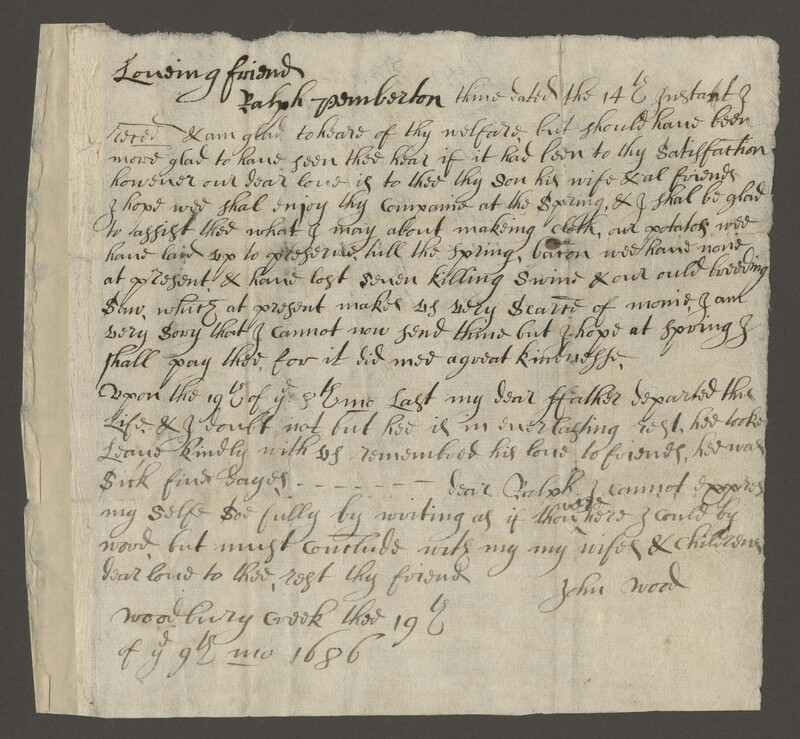 Loueing friend
Ralph Pemberton thine dated the 14th Instant I
reced & am glad to heare of thy welfare but should haue been
more glad to haue seen thee hear if it had been to thy Satisfaction
howeuer our dear loue is to thee thy Son his wife & al friends
I hope wee shal enjoy thy Companie at the Spring, & I shal be glad
to assist thee what I may about making Cloth, our potatos wee
haue laid vp to preserue till the Spring, bacon wee haue none
at present, & haue lost seuen killing Swine & our ould breeding
Saw, which at present makes vs very Scarce of monie, I am
very Sory that I cannot now send thine but I hope at Spring I
shall pay thee, for it did mee a great kindnesse,
Vpon the 19th of ye 8th mo Last my dear ffather departed this
Life, & I doubt not but hee is in euerlasting rest, hee tooke
Leaue kindly with vs remembred his loue to friends, hee was
Sick fiue dayes - - - - - - - dear Ralph I cannot express
my Selfe Soe fully by writing as if thou were here I could by
word, but must Conclude with my my wifes & Childrens
dear loue to thee, rest thy friend
John Wood
Woodbury Creek thee 19th
of ye 9th mo 1686